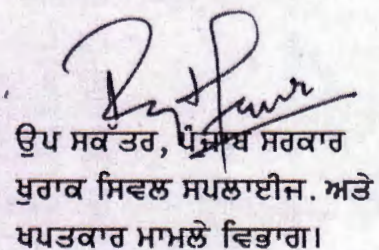 ਉਪ ਸਕੱਤਰ, ਪੰਜਾਬ ਸਰਕਾਰ
ਖੁਰਾਕ ਸਿਵਲ ਸਪਲਾਈਜ. ਅਤੇ
ਖਪਤਕਾਰ ਮਾਮਲੇ ਵਿਭਾਗ।